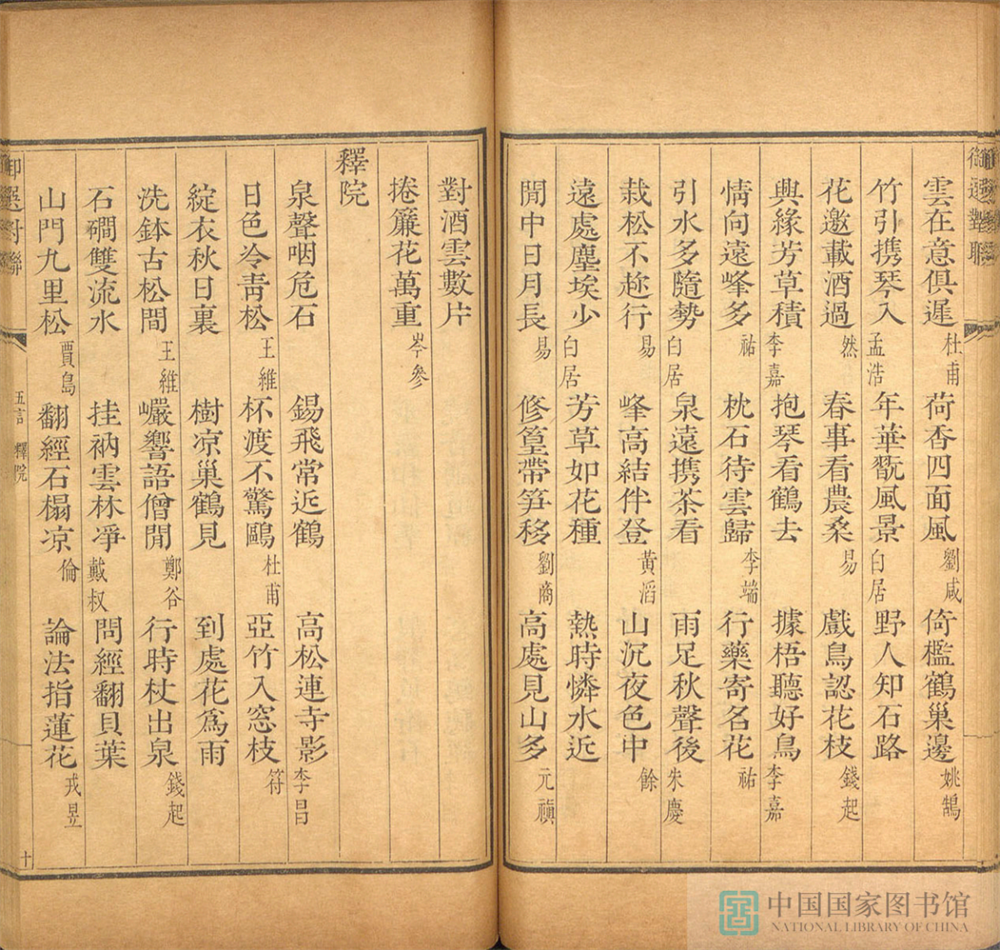 御選對聯
雲在意俱遲 杜甫 荷香四面風 劉咸 倚檻鶴巢邊 姚鵠
竹引携琴入 孟浩 年華翫風景 白居 野人知石路
花邀載酒過 然 春事看農桑 易 戲鳥認花枝 錢起
興緣芳草積 李嘉 抱琴看鶴去 據梧聽好鳥 李嘉
情向遠峰多 祐 枕石待雲歸 李端 行藥寄名花 祐
引水多隨勢 白居 泉遠携茶看 雨足秋聲後 朱慶
栽松不趂行 易 峰高結伴登 黃滔 山沉夜色中 餘
遠處塵埃少 白居 芳草如花種 熱時憐水近
閒中日月長 易 修篁帶笋移 劉商 高處見山多 元禛
對酒雲數片
捲簾花萬重 岑參
釋院
泉聲咽危石 錫飛常近鶴 高松連寺影 李昌
日色冷靑松 王維 杯渡不驚鷗 杜甫 亞竹入窓枝 符
綻衣秋日裏 樹凉巢鶴見 到處花爲雨
洗鉢古松間 王維 巗響語僧閒 鄭谷 行時杖出泉 錢起
石磵雙流水 挂衲雲林凈 戴叔 問經翻貝葉
山門九里松 賈島 翻經石榻凉 倫 論法指蓮花 戎昱
御選對聯
五言 釋院
十
中国国家图书馆
NATIONAL LIBRARY OF CHINA